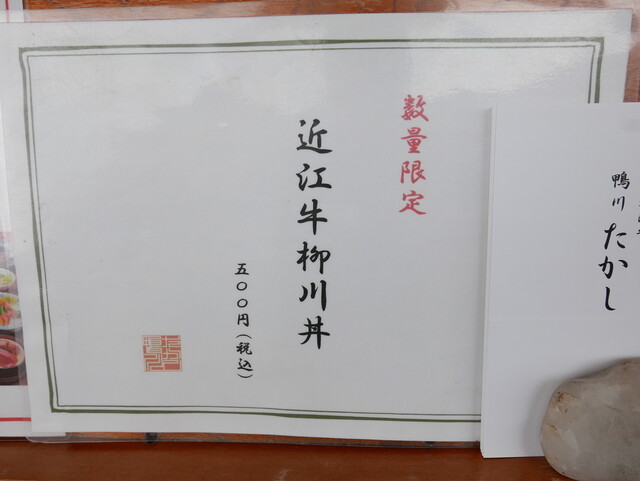 数量限定
近江牛柳川丼
五〇〇円(税込)
鴨川 たかし